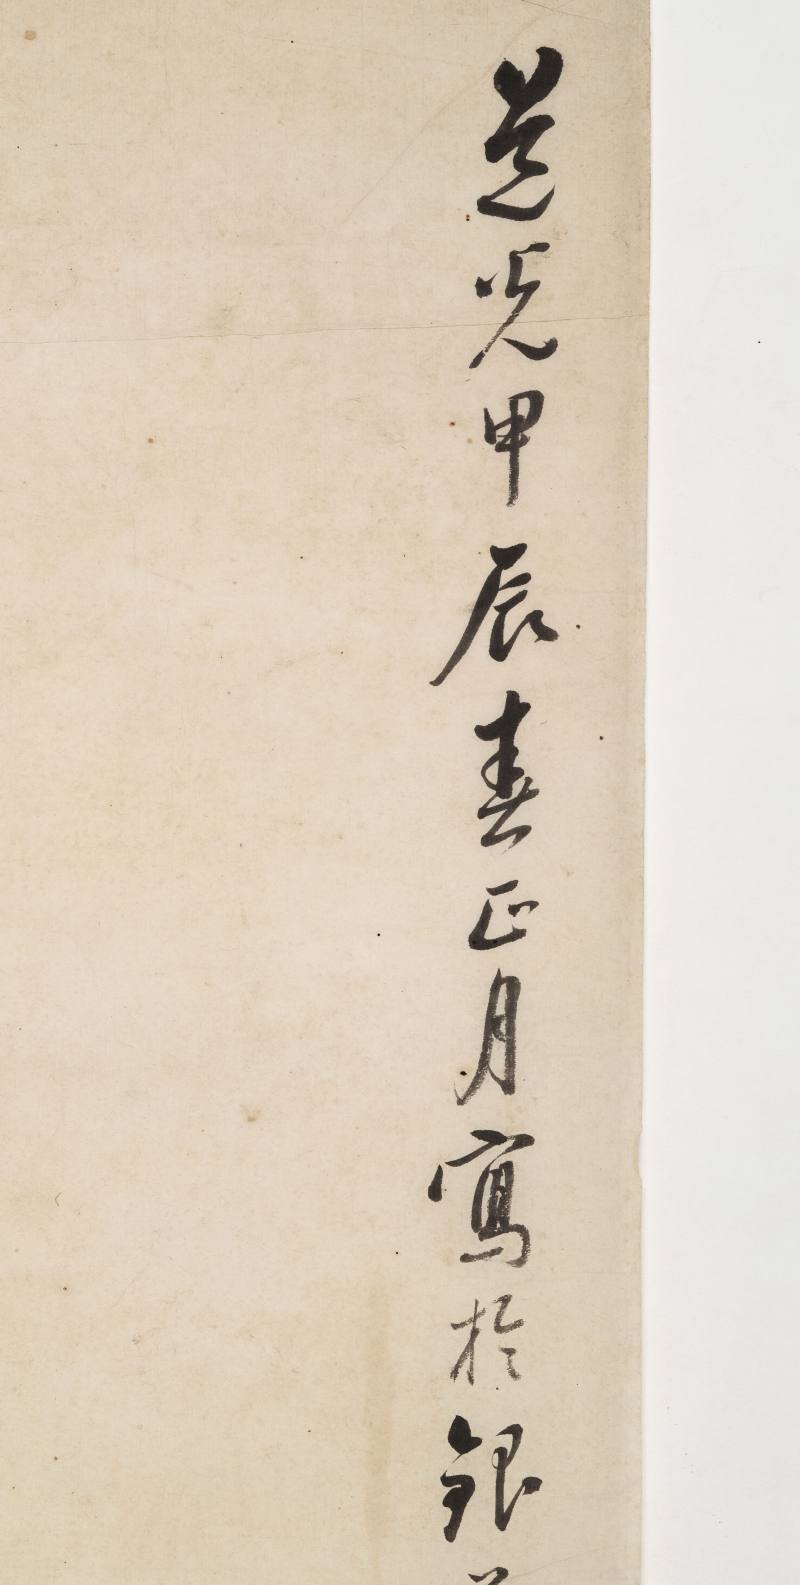 道光甲辰春正月寫於銀